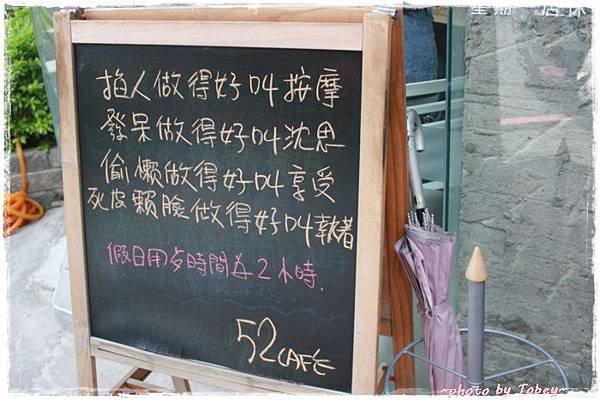 星期 店休
掐人做得好叫按摩
發呆做得好叫沈思
偷懶做得好叫享受
死皮賴臉做得好叫執著
假日用歺時間為2小時.
52 CAFE
~photo by Tobey~